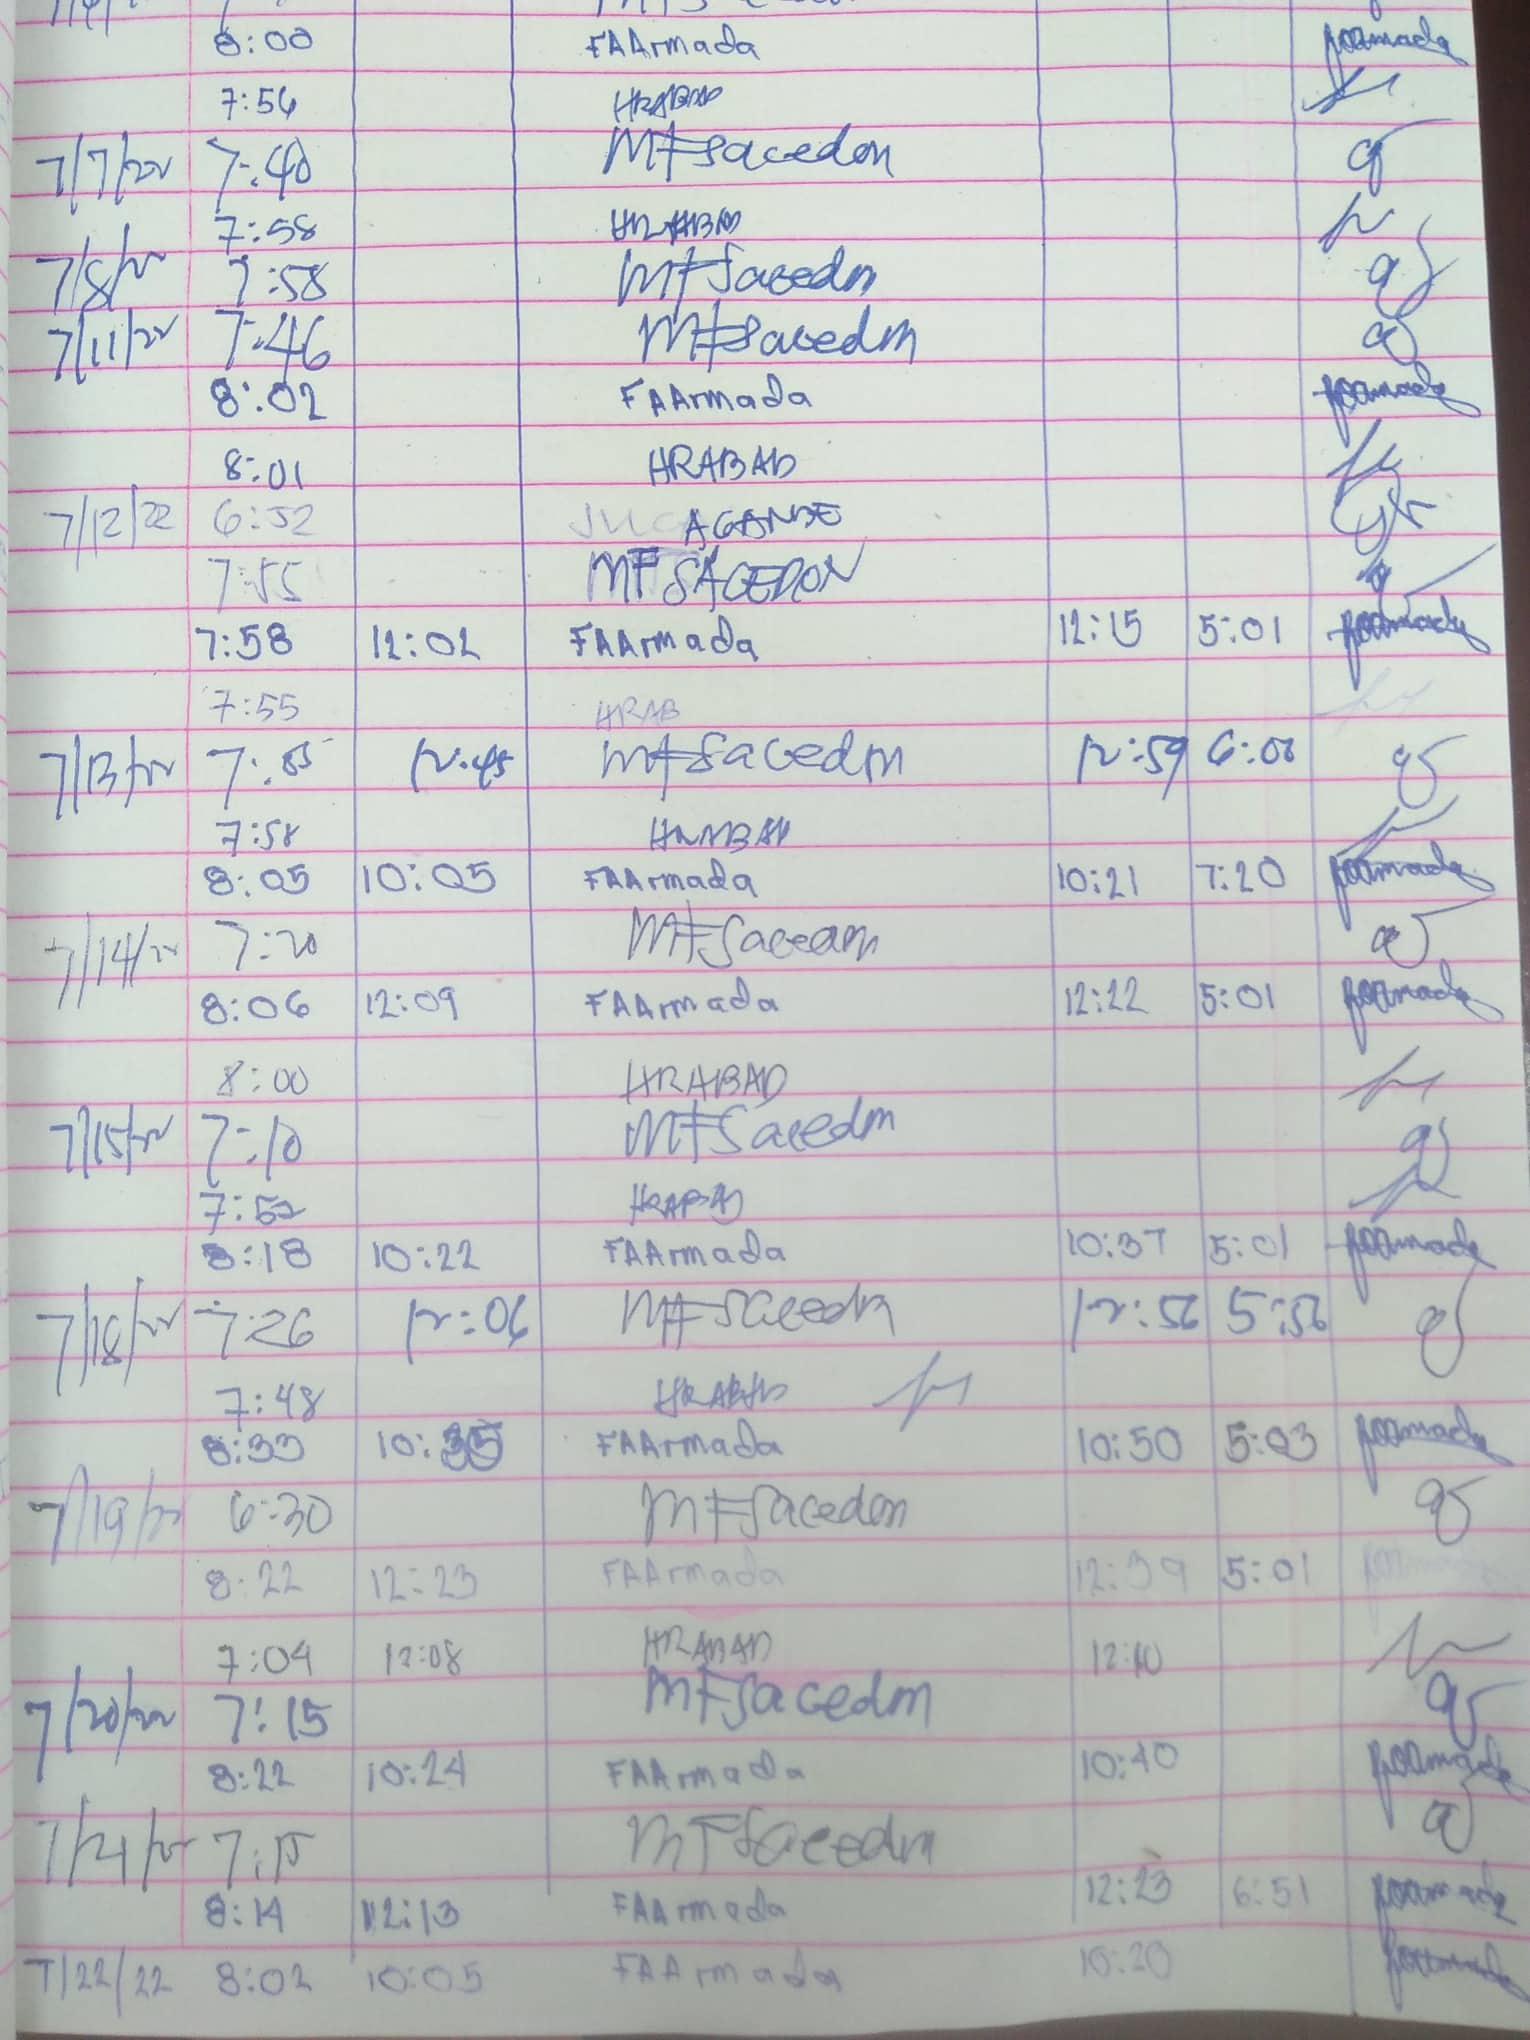 8:00 FAArmada
7:56 HRABAD
7/7/22 7:40 MFSacedon
7:58 HRABAD
7/8/22 7:58 MFSacedon
7/11/22 7:46 MFSacedon
8:02 FAArmada
8:01 HRABAD
7/12/22 6:52 AGANDE
7:55 MF SACEDON
7:58 12:02 FAArmada 12:15 5:01
7:55 HRAB
7/13/22 7:55 12:45 MFSacedon 12:59 6:00
7:58 HRABAD
8:05 10:05 FAArmada 10:21 7:20
7/14/22 7:20 MFSacedon
8:06 12:09 FAArmada 12:22 5:01
8:00 HRABAD
7/15/22 7:10 MFSacedon
7:52 HRABAD
8:18 10:22 FAArmada 10:37 5:01
7/18/22 7:26 12:06 MFSacedon 12:56 5:56
7:48 HRABAD
8:33 10:35 FAArmada 10:50 5:03
7/19/22 6:30 MFSacedon
8:22 12:23 FAArmada 12:39 5:01
7:04 12:08 HRABAD 12:10
7/20/22 7:15 MFSacedon
8:22 10:24 FAArmada 10:40
7/21/22 7:15 MFSacedon
8:14 12:13 FAArmada 12:23 6:51
7/22/22 8:02 10:05 FAArmada 10:20